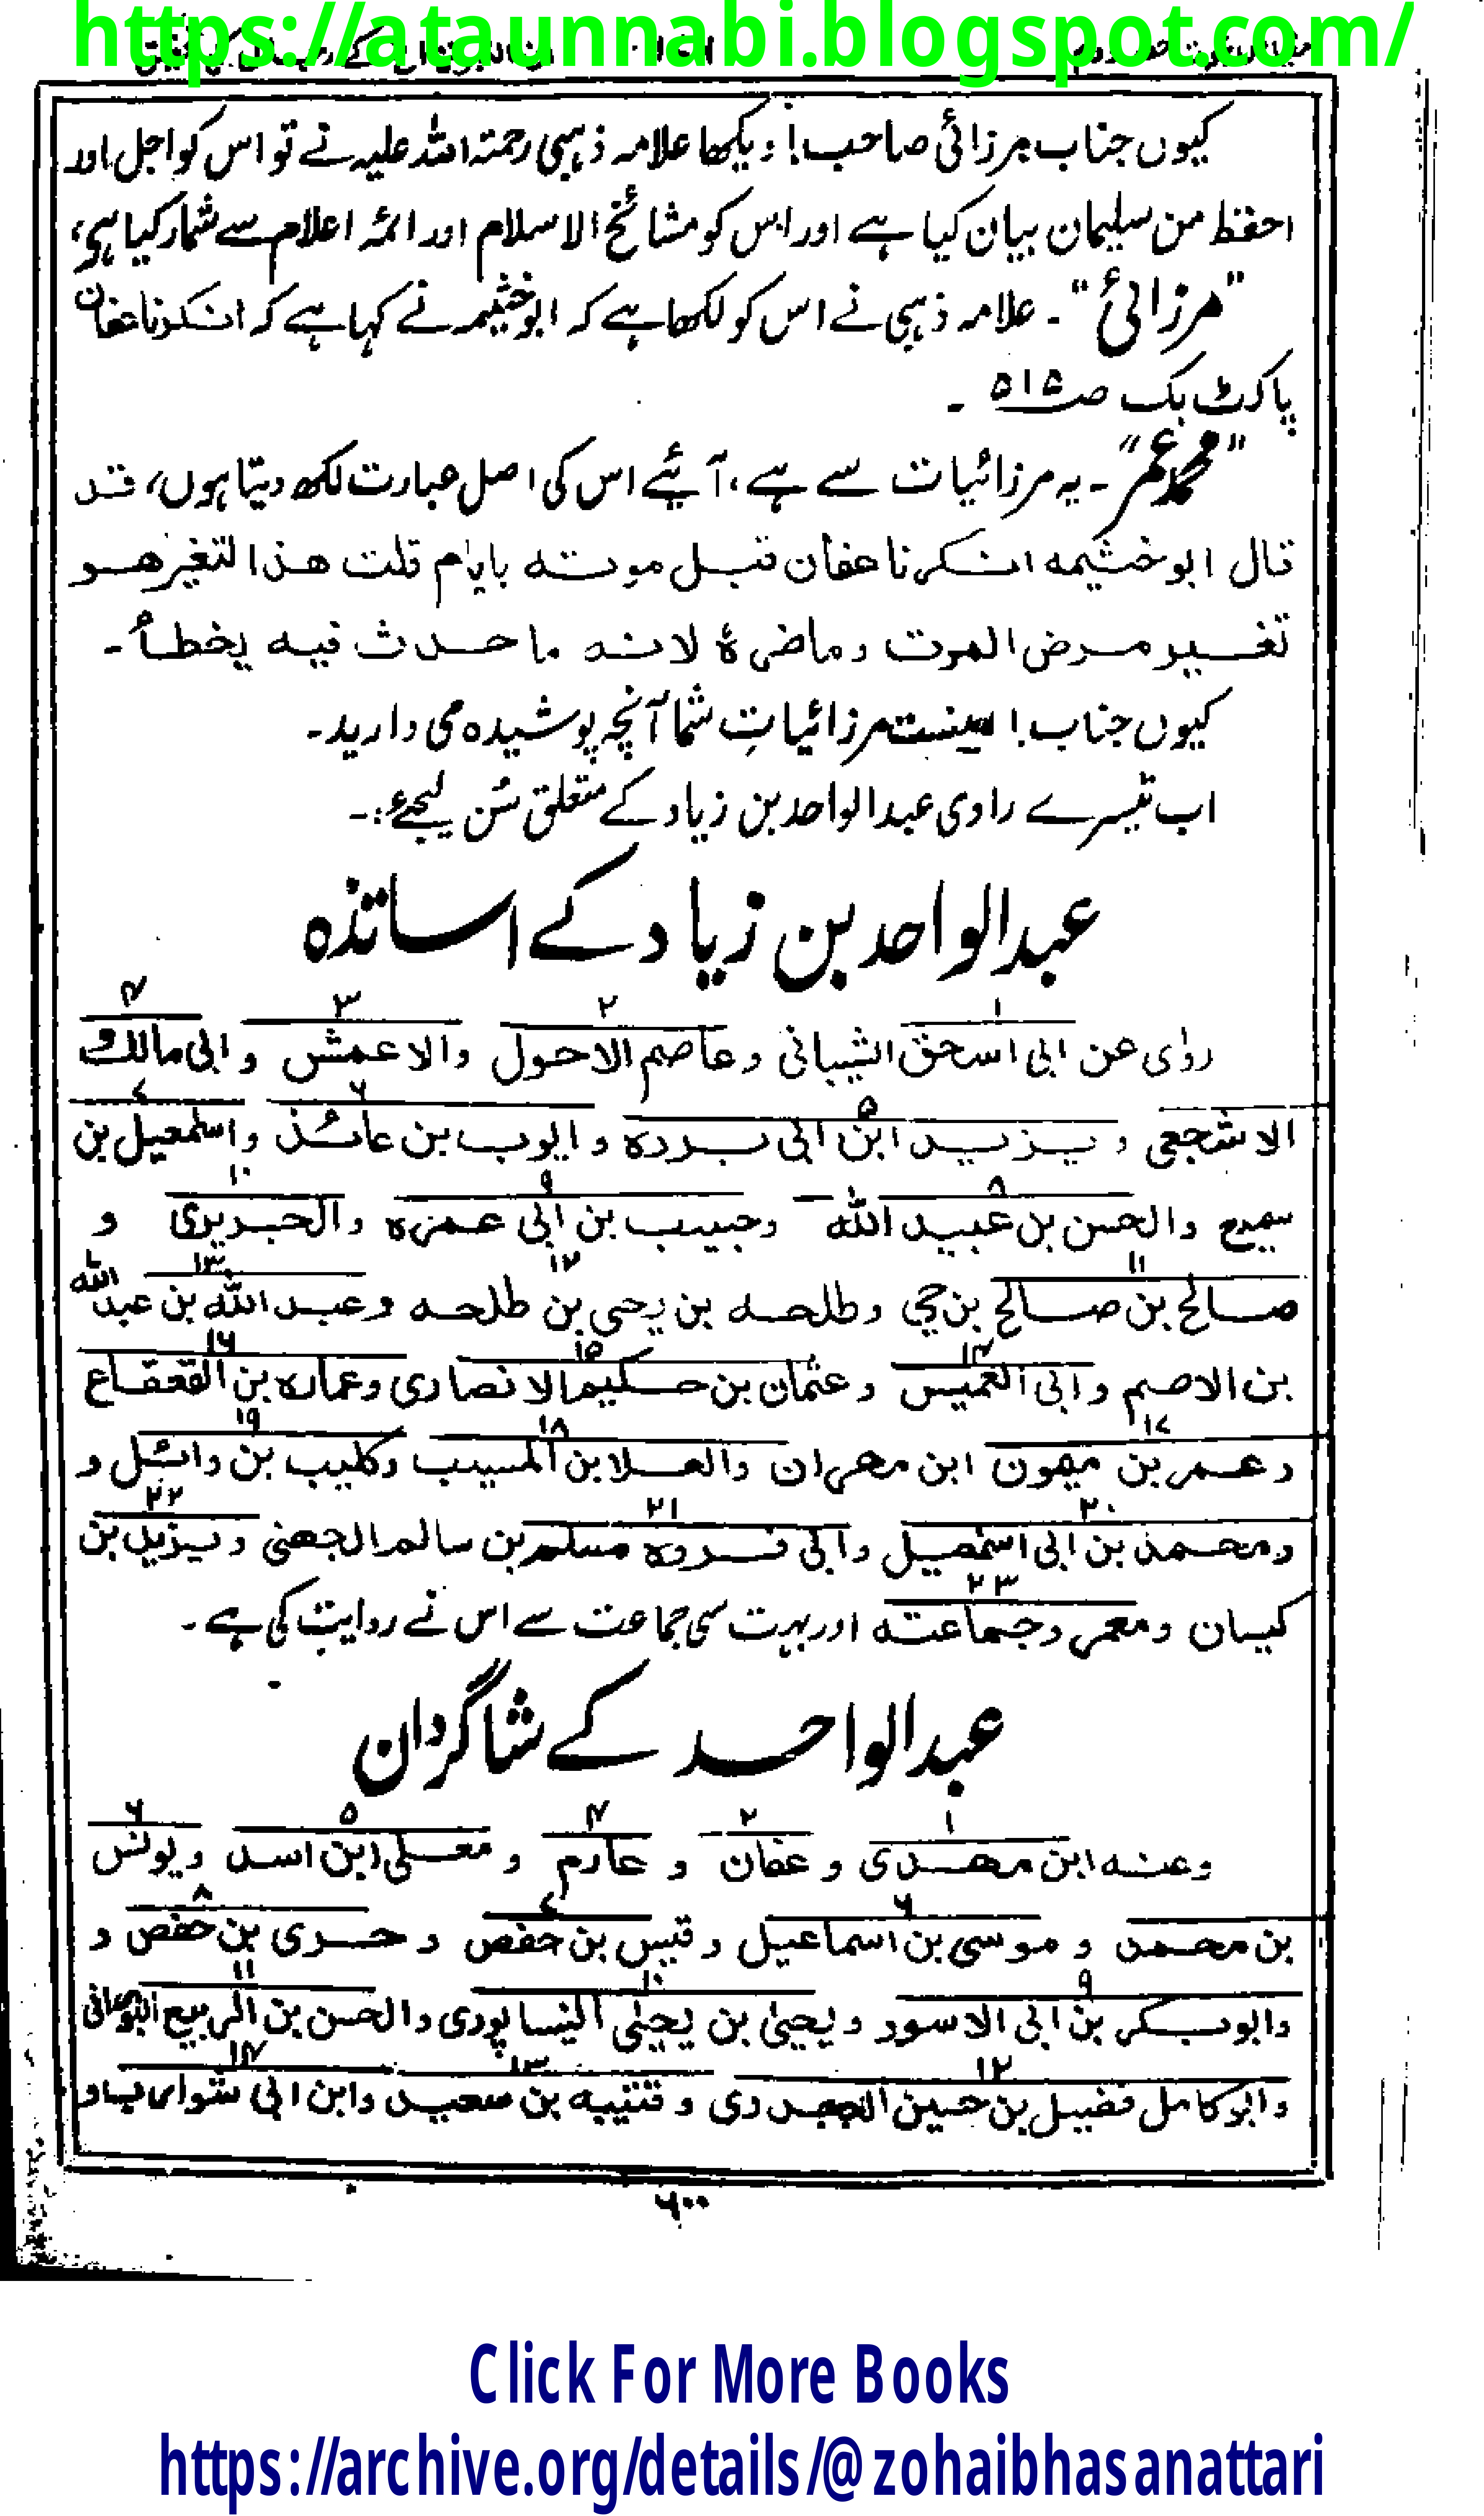 https://ataunnabi.blogspot.com/
کیوں جناب مرزائی صاحب! دیکھا علامہ ذہبی رحمتہ اللہ علیہ نے تو اس کو اجل اور
احفظ من سلیمان بیان کیا ہے اور اس کو مشائخ الاسلام اور ائمہ اعلام سے شمار کیا ہے،
"مرزائی"۔ علامہ ذہبی نے اس کو لکھا ہے کہ ابوخثیمہ نے کہا ہے کہ انکرنا عفان
پاکٹ بک صـ ۵۱۵ ۔
"محمد عمر"۔ یہ مرزائیات سے ہے، آئیے اس کی اصل عبارت لکھ دیتا ہوں، قد
قال ابوخثیمہ انکرنا عفان قبل موتہ بایام قلت ھذا التغیر ھو
تغیر مرض الموت وماضرہ لانہ ما حدث فیہ یخطأ۔
کیوں جناب! اینست مرزائیاتِ شما آنچہ پوشیدہ می دارید۔
اب تیسرے راوی عبدالواحد بن زیاد کے متعلق سُن لیجئے:۔
عبدالواحد بن زیاد کے اساتذہ
۱ ۲ ۳ ۴
روٰی عن ابی اسحق الشیبانی وعاصم الاحول والاعمش وابی مالک
۵ ۶ ۷
الاشجعی و یزید ابن ابی بردہ وایوب بن عائذ واسمٰعیل بن
۸ ۹ ۱۰
سمیع والحسن بن عبید اللہ وحبیب بن ابی عمرہ والجریری و
۱۱ ۱۲ ۱۳
صالح بن صالح بن حی وطلحہ بن یحیی بن طلحہ وعبد اللہ بن عبد اللہ
۱۴ ۱۵ ۱۶
بن الاصم وابی العمیس وعثمان بن حکیم الانصاری وعمارہ بن القعقاع
۱۷ ۱۸ ۱۹
وعمر بن میمون ابن مھران والعلا بن المسیب وکلیب بن وائل و
۲۰ ۲۱ ۲۲
ومحمد بن ابی اسمٰعیل وابی فروہ مسلم بن سالم الجھنی ویزید بن
۲۳
کیسان ومعمر وجماعتہ اور بہت سی جماعت سے اس نے روایت کی ہے۔
عبدالواحد کے شاگردان
۱ ۲ ۴ ۵ ۶
وعنہ ابن مھدی و عفان و عارم و معلی ابن اسد ویونس
۶ ۷ ۸
بن محمد و موسی بن اسماعیل وقیس بن حفص وحرمی بن حفص و
۹ ۱۰ ۱۱
وابوبکر بن ابی الاسود ویحیٰی بن یحیٰی النیساپوری والحسن بن الربیع
۱۲ ۱۳ ۱۴
وابوکامل فضیل بن حسین الجحدری و قتیبہ بن سعید وابن ابی شوارب و
۶۰۰
Click For More Books
https://archive.org/details/@zohaibhasanattari